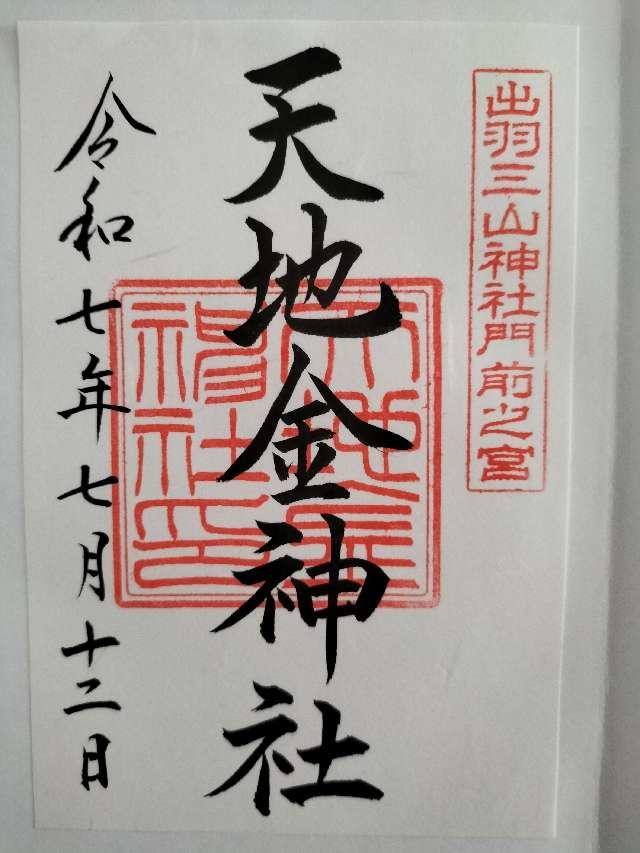 出羽三山神社門前之宮
天地金神社
天地金神社印
令和七年七月十二日